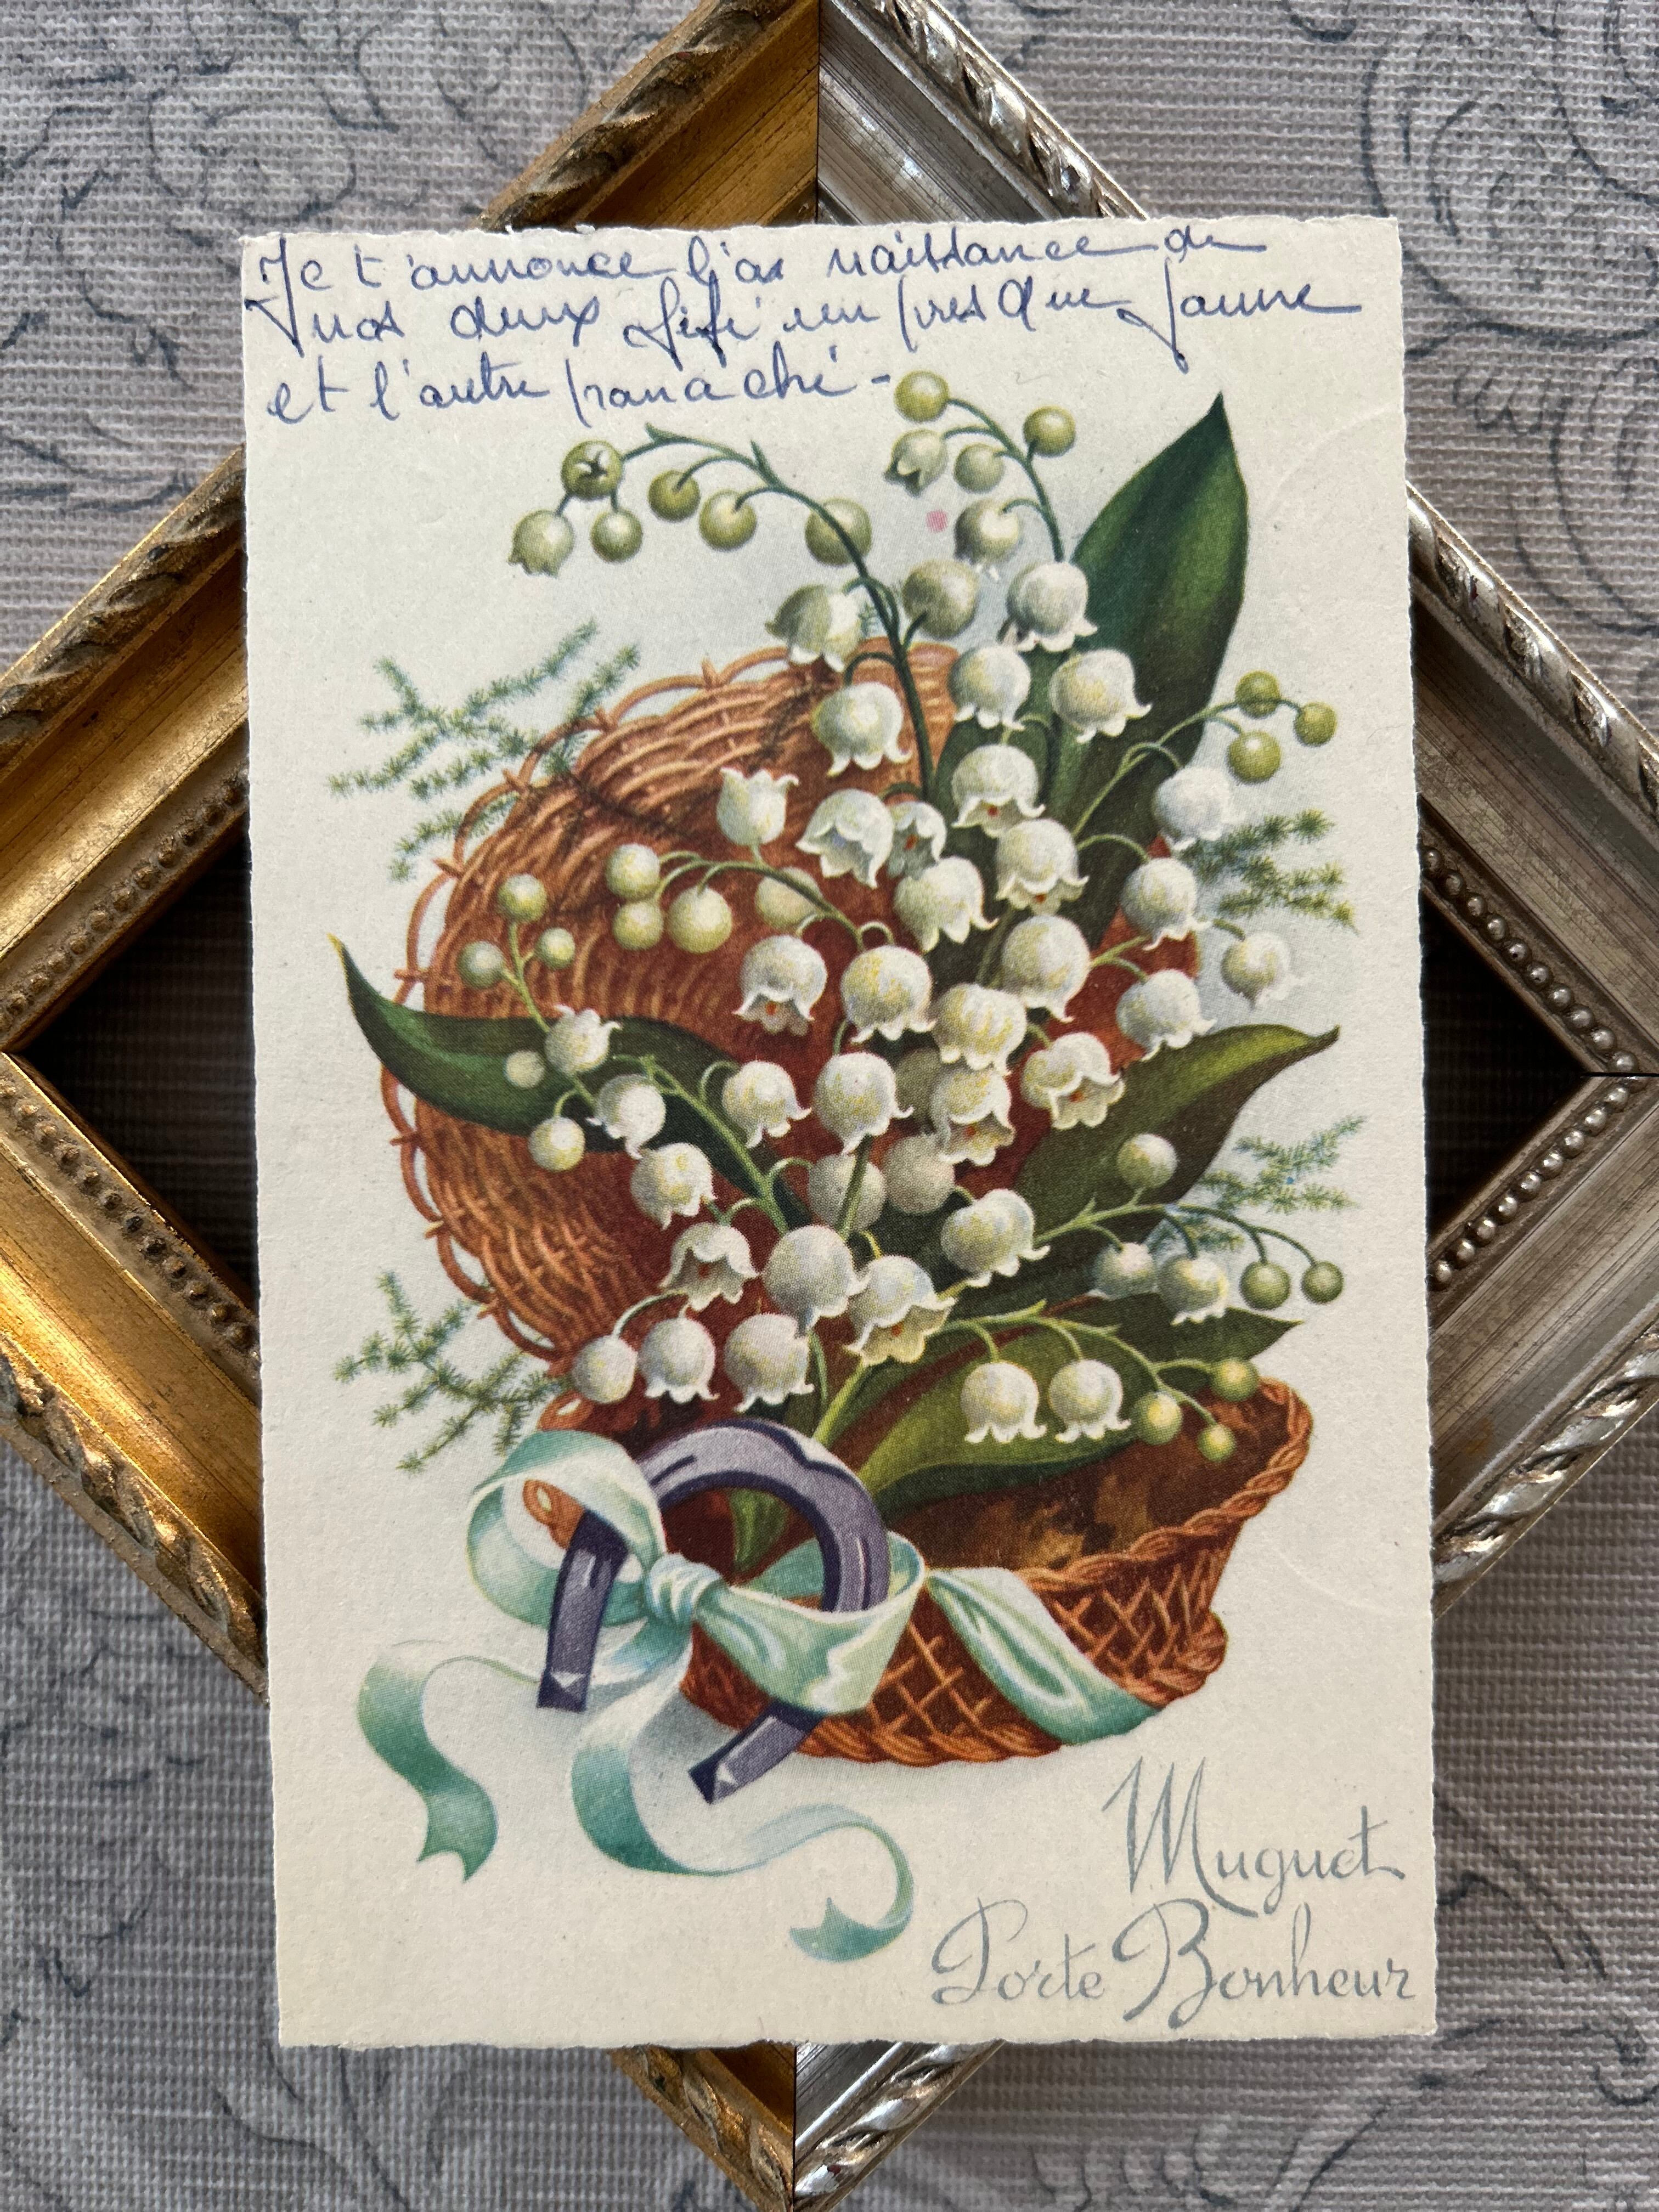 Je t'annonce la naissance de
nos deux fifi un presque jaune
et l'autre panaché -
Muguet
Porte Bonheur